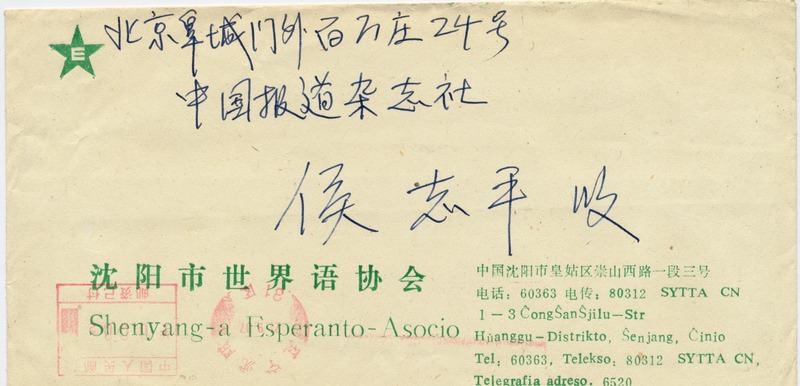 E
北京阜城门外百万庄24号
中国报道杂志社
侯志平 收
沈阳市世界语协会
Shenyang-a Esperanto-Asocio
中国沈阳市皇姑区崇山西路一段三号
电话: 60363 电传: 80312 SYTTA CN
1－3 ĈongŜanŜjilu-Str
Hŭanggu-Distrikto, Ŝenjang, Ĉinio
Tel: 60363, Telekso: 80312 SYTTA CN,
Telegrafia adreso. 6520
邮资已付
中国人民邮